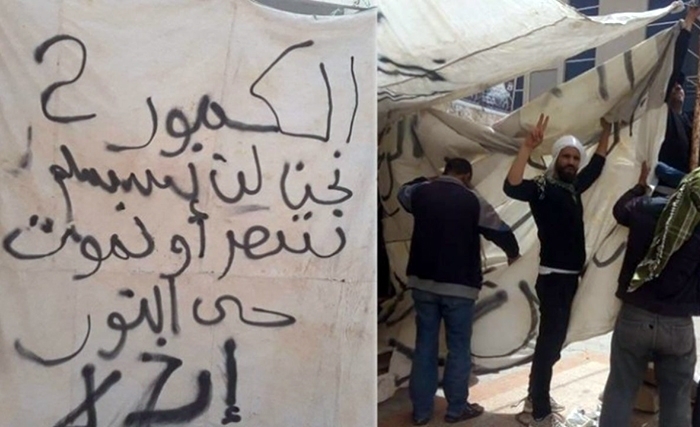 الكمور 2
نحنا لن نستسلم
ننتصر أو نموت
حي النور
إرخ لا